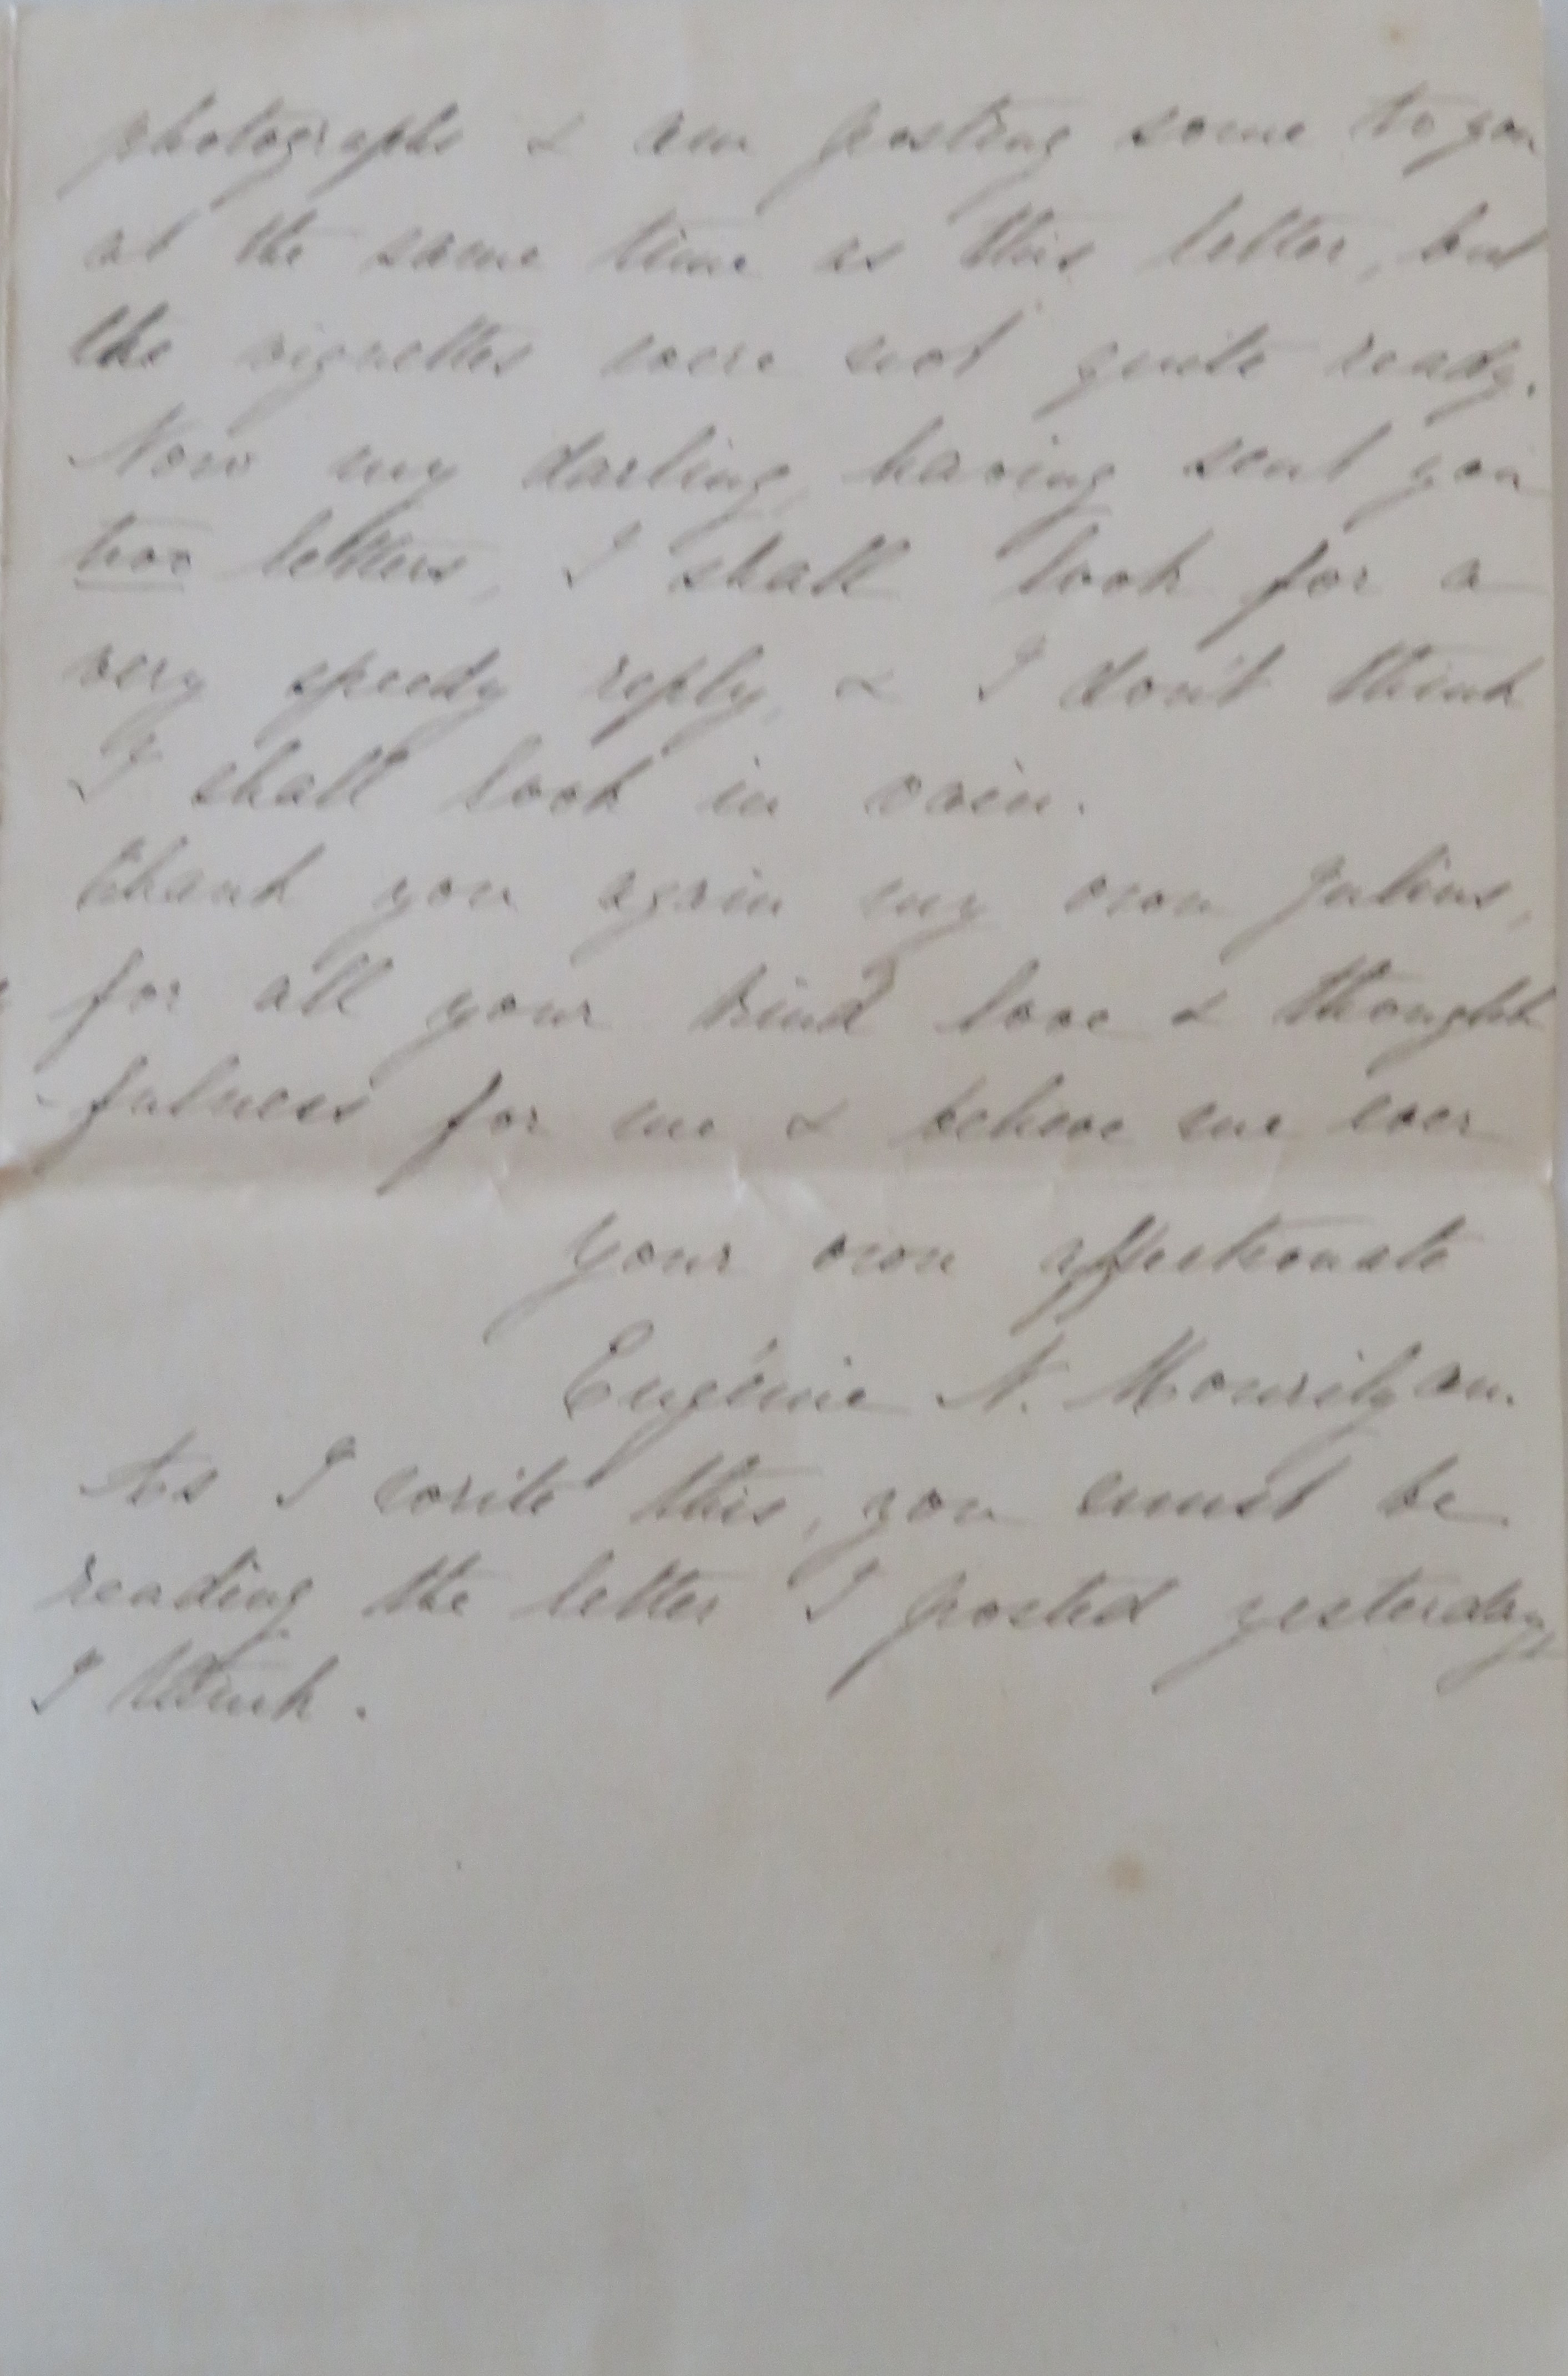 photographs & am posting some to you
at the same time as this letter, but
the vignettes were not quite ready.
Now my darling, having sent you
two letters, I shall look for a
very speedy reply, & I don't think
I shall look in vain.
Thank you again my own Julius,
for all your kind love & thought
-fulness for me & believe me ever
Your own affectionate
Eugénie N. Mourilyan.
As I write this, you must be
reading the letter I posted yesterday,
I think.